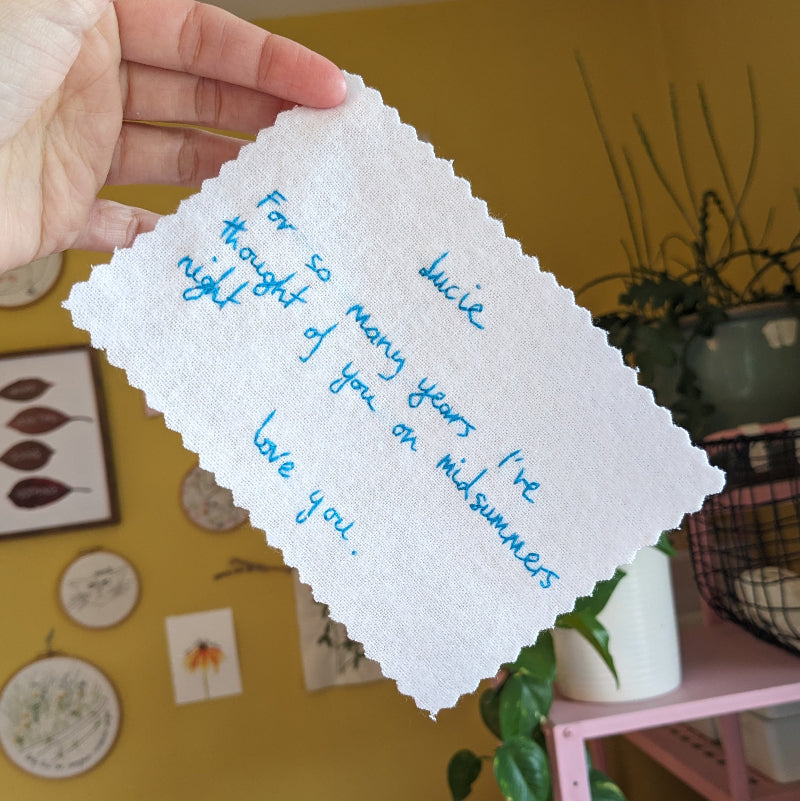 Lucie
For so many years I've
thought of you on midsummers
night
love you.